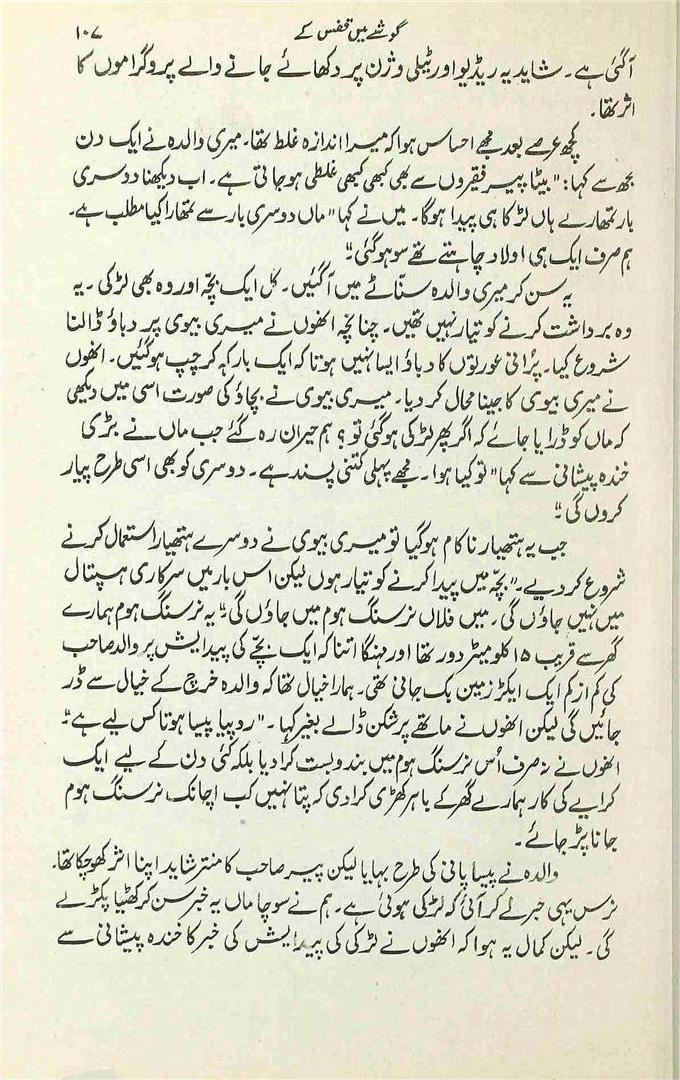 گوشے میں قفس کے ۱۰۷
آگئی ہے۔ شاید یہ ریڈیو اور ٹیلی وژن پر دکھائے جانے والے پروگراموں کا
اثر تھا۔
کچھ عرصے بعد مجھے احساس ہوا کہ میرا اندازہ غلط تھا۔ میری والدہ نے ایک دن
مجھ سے کہا: "بیٹا پیر فقیروں سے بھی کبھی کبھی غلطی ہو جاتی ہے۔ اب دیکھنا دوسری
بار تمھارے ہاں لڑکا ہی پیدا ہوگا۔ میں نے کہا "ماں دوسری بار سے تمھارا کیا مطلب ہے۔
ہم صرف ایک ہی اولاد چاہتے تھے سو ہوگئی"۔
یہ سن کر میری والدہ سنّاٹے میں آگئیں۔ کُل ایک بچّہ اور وہ بھی لڑکی۔ یہ
وہ برداشت کرنے کو تیار نہیں تھیں۔ چنانچہ انھوں نے میری بیوی پر دباؤ ڈالنا
شروع کیا۔ پرُانی عورتوں کا دباؤ ایسا نہیں ہوتا کہ ایک بار کہہ کر چپ ہوگئیں۔ انھوں
نے میری بیوی کا جینا محال کر دیا۔ میری بیوی نے بچاؤ کی صورت اسی میں دیکھی
کہ ماں کو ڈرایا جائے کہ اگر پھر لڑکی ہوگئی تو؟ ہم حیران رہ گئے جب ماں نے بڑی
خندہ پیشانی سے کہا "تو کیا ہوا۔ مجھے پہلی کتنی پسند ہے۔ دوسری کو بھی اسی طرح پیار
کروں گی"۔
جب یہ ہتھیار ناکام ہوگیا تو میری بیوی نے دوسرے ہتھیار استعمال کرنے
شروع کر دیے۔ "بچّہ میں پیدا کرنے کو تیار ہوں لیکن اس بار میں سرکاری ہسپتال
میں نہیں جاؤں گی۔ میں فلاں نرسنگ ہوم میں جاؤں گی"۔ یہ نرسنگ ہوم ہمارے
گھر سے قریب ۱۵ کلو میٹر دور تھا اور مہنگا اتنا کہ ایک بچّے کی پیدایش پر والد صاحب
کی کم از کم ایک ایکڑ زمین بک جانی تھی۔ ہمارا خیال تھا کہ والدہ خرچ کے خیال سے ڈر
جائیں گی لیکن انھوں نے ماتھے پر شکن ڈالے بغیر کہا۔ "روپیا پیسا ہوتا کس لیے ہے"۔
انھوں نے نہ صرف اُس نرسنگ ہوم میں بندوبست کرا دیا بلکہ کئی دن کے لیے ایک
کرایے کی کار ہمارے گھر کے باہر کھڑی کرا دی کہ پتا نہیں کب اچانک نرسنگ ہوم
جانا پڑ جائے۔
والدہ نے پیسا پانی کی طرح بہایا لیکن پیر صاحب کا منتر شاید اپنا اثر کھو چکا تھا۔
نرس یہی خبر لے کر آئی کہ لڑکی ہوئی ہے۔ ہم نے سوچا ماں یہ خبر سن کر کھٹیا پکڑ لے
گی۔ لیکن کمال یہ ہوا کہ انھوں نے لڑکی کی پیدایش کی خبر کا خندہ پیشانی سے